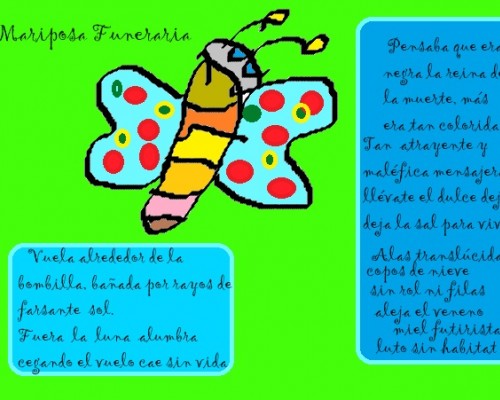 Mariposa Funeraria
Pensaba que era
negra la reina de
la muerte, más
era tan colorida
Tan atrayente y
maléfica mensajera
llévate el dulce dej
deja la sal para viv
Alas translúcida
copos de nieve
sin rol ni filas
aleja el veneno
miel futurista
luto sin habitat
Vuela alrededor de la
bombilla, bañada por rayos de
farsante sol.
Fuera la luna alumbra
cegando el vuelo cae sin vida